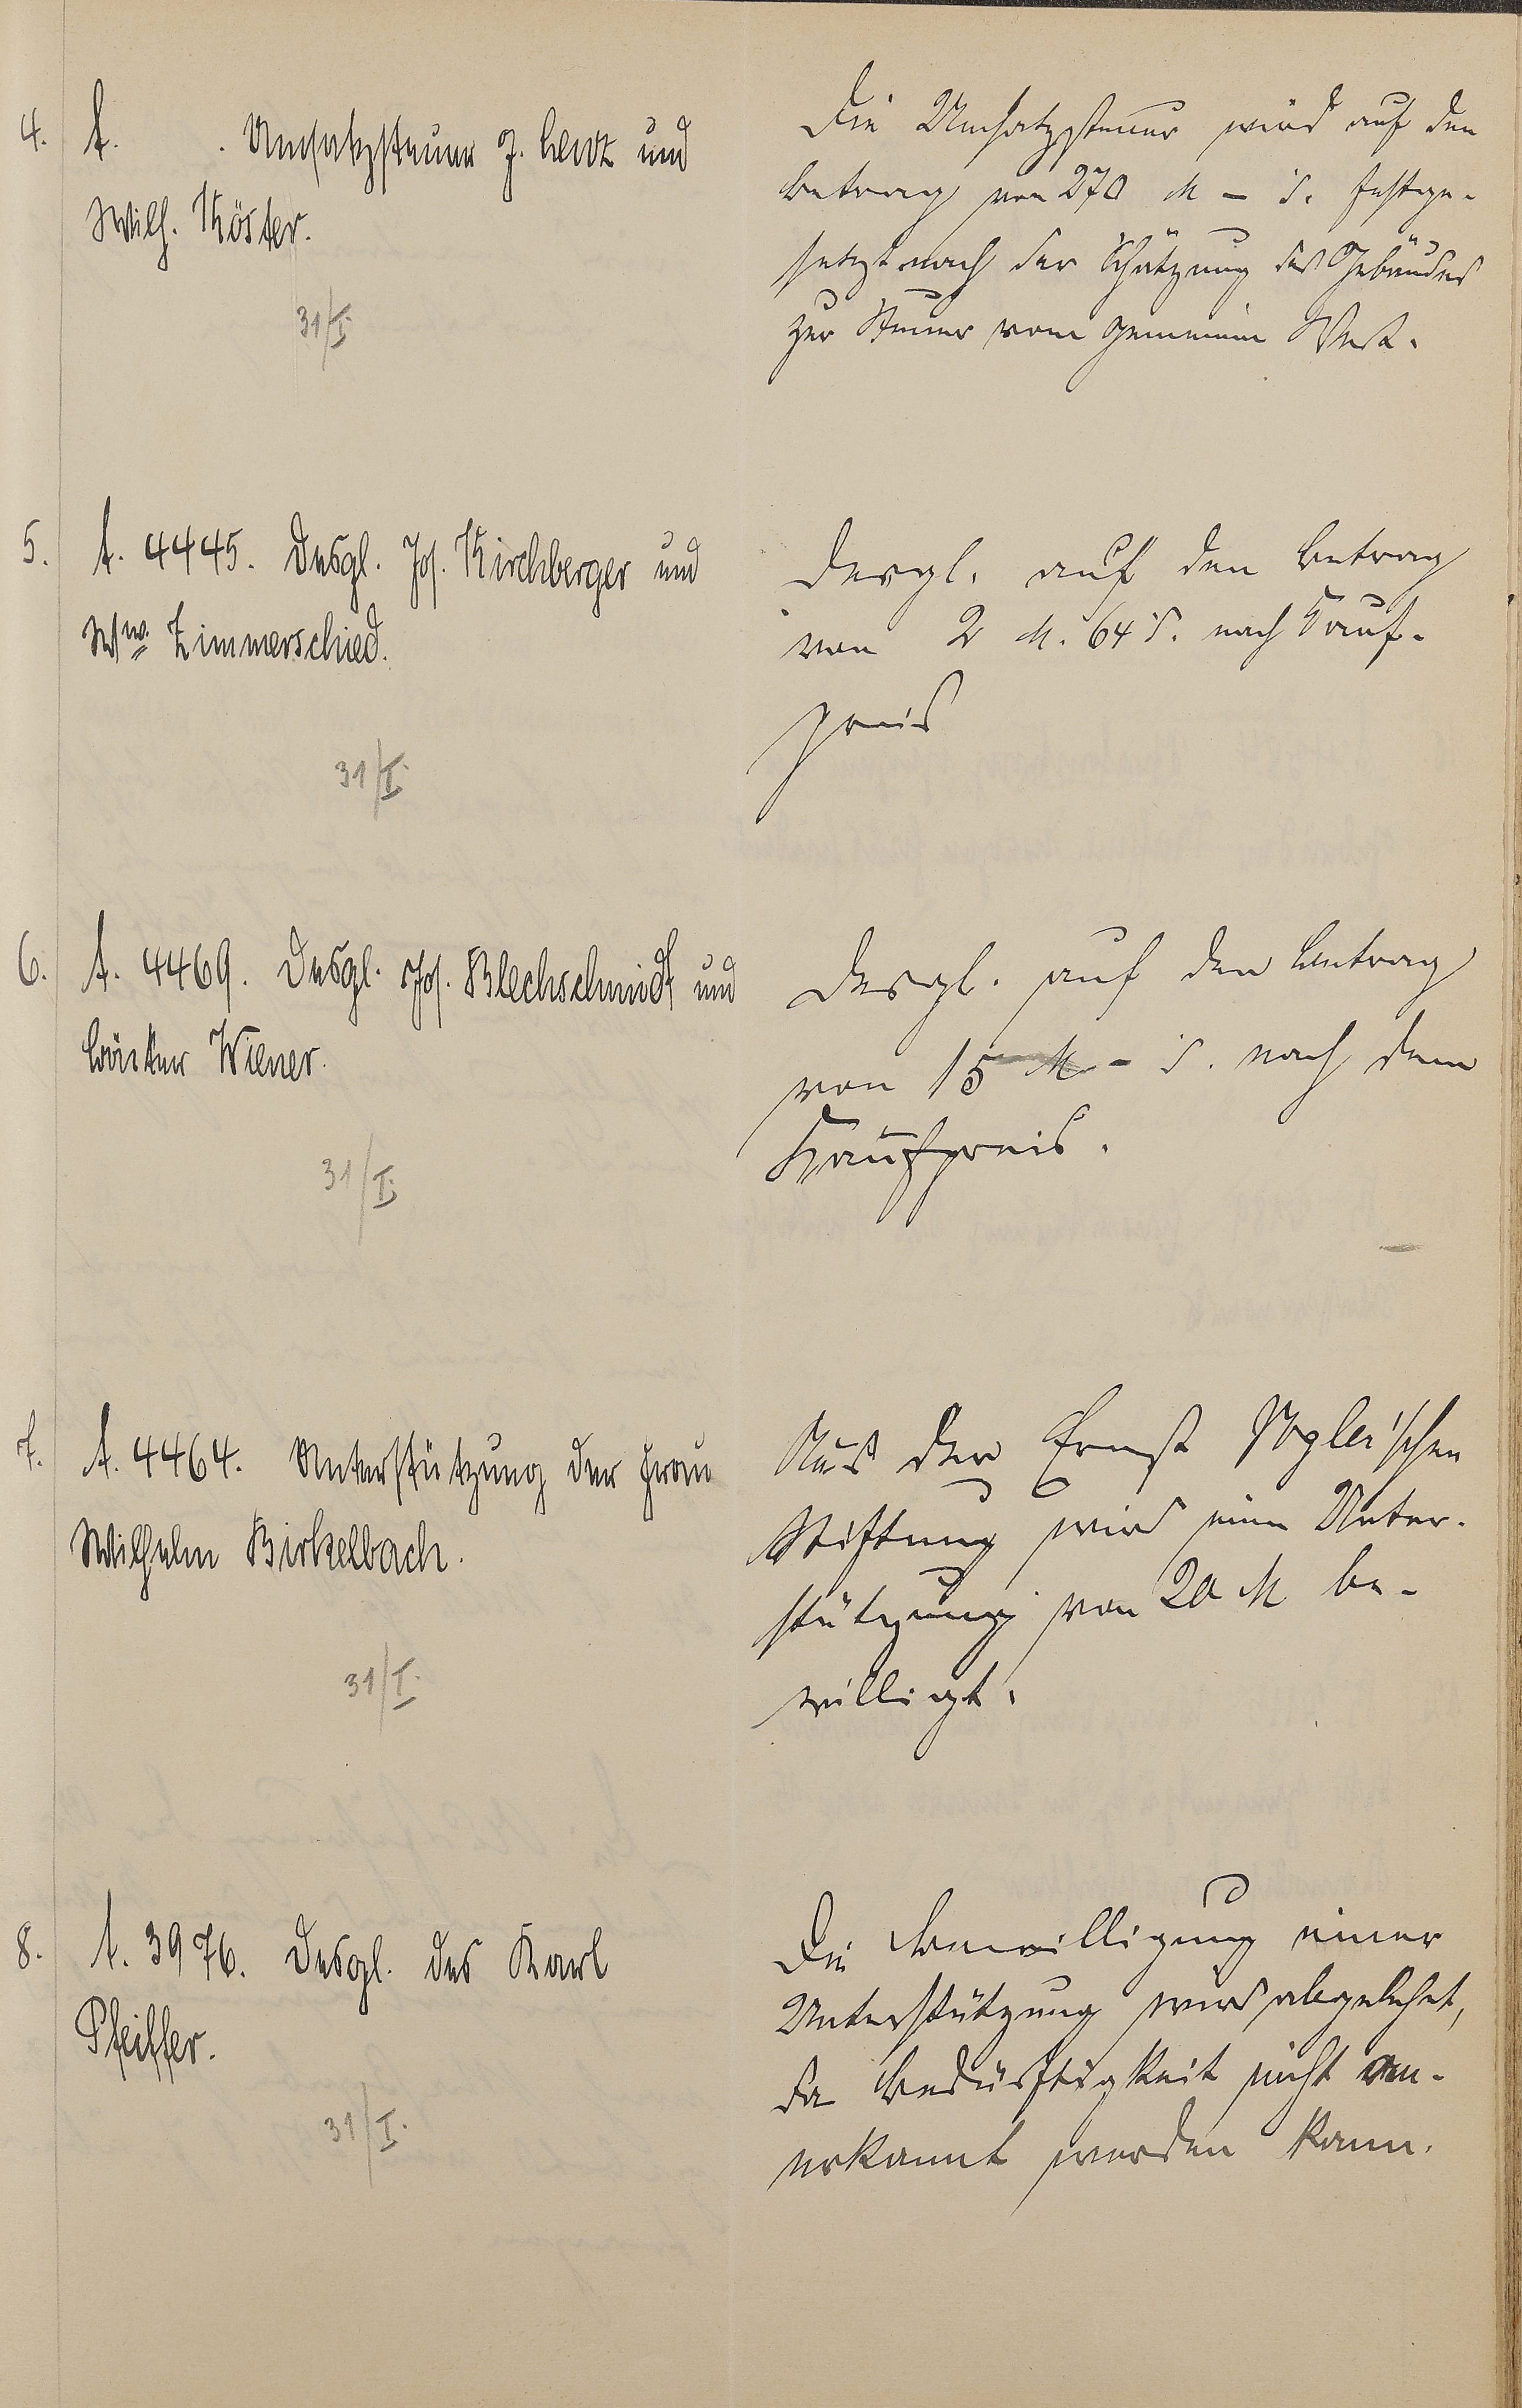 4. A. . Umsatzsteuer J. Lentz und
Wilh. Köster.
31/I.
Die Umsatzsteuer wird auf den
Betrag von 270 M – S. festge-
setzt nach der Schätzung des Gebäudes
zur Steuer vom gemeinen Wert.
5. A. 4445. Desgl. Jos. Kirchberger und
Ww. Zimmerschied.
31/I.
Desgl. auf den Betrag
von 2 M. 64 S. nach Kauf-
preis
6. A. 4469. Desgl. Jos. Blechschmidt und
Bäcker Wiener.
31/I.
Desgl. auf den Betrag
von 15 M – S. nach dem
Kaufpreis.
7. A. 4464. Unterstützung der Frau
Wilhelm Birkelbach.
31/I.
Aus der Ernst Vogler'schen
Stiftung wird eine Unter-
stützung von 20 M be-
willigt.
8. A. 3976. Desgl. des Karl
Pfeiffer.
31/I.
Die Bewilligung einer
Unterstützung wird abgelehnt,
da Bedürftigkeit nicht an-
erkannt werden kann.